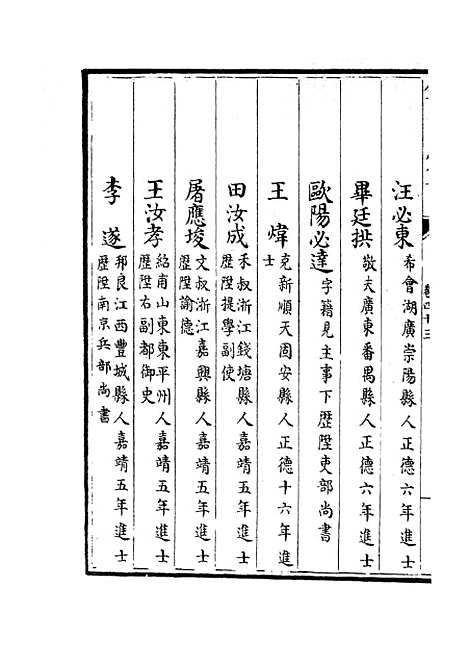 汪必東 希會湖廣崇陽縣人正德六年進士
畢廷拱 敬夫廣東番禺縣人正德六年進士
歐陽必達 字籍見主事下歷陞吏部尚書
王煒 克新順天固安縣人正德十六年進士
田汝成 禾叔浙江錢塘縣人嘉靖五年進士歷陞提學副使
屠應埈 文叔浙江嘉興縣人嘉靖五年進士歷陞諭德
王汝孝 紹甫山東東平州人嘉靖五年進士歷陞右副都御史
李遂 邦良江西豐城縣人嘉靖五年進士歷陞南京兵部尚書